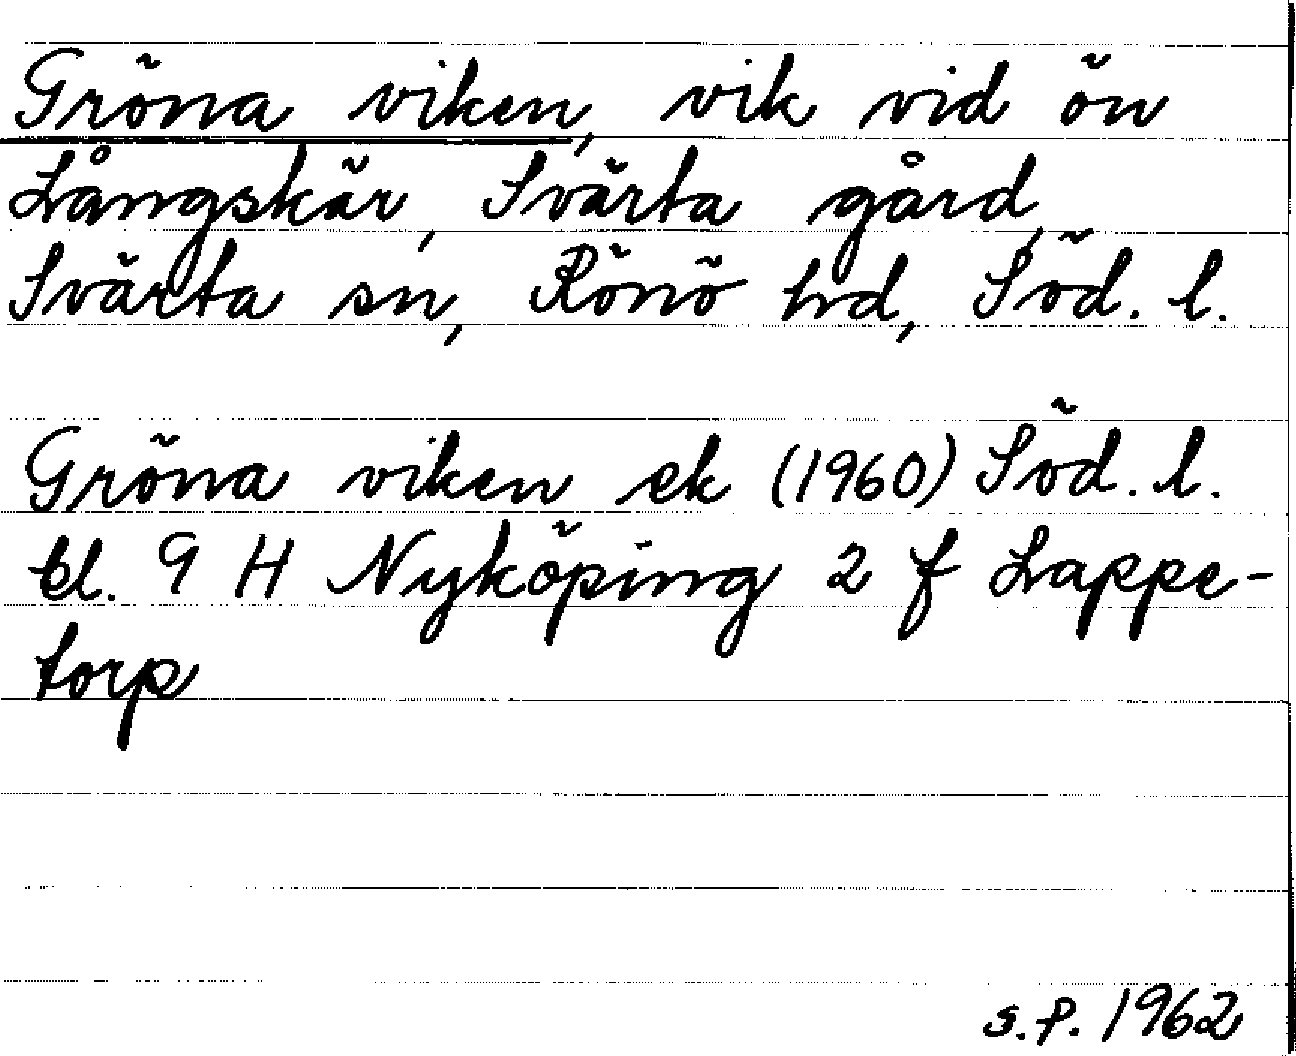 Gröna viken, vik vid ön
Långskär, Svärta gård,
Svärta sn, Rönö hd, Söd. l.
Gröna viken ek (1960) Söd. l.
bl. 9 H Nyköping 2 f Lappe-
torp
s.f. 1962